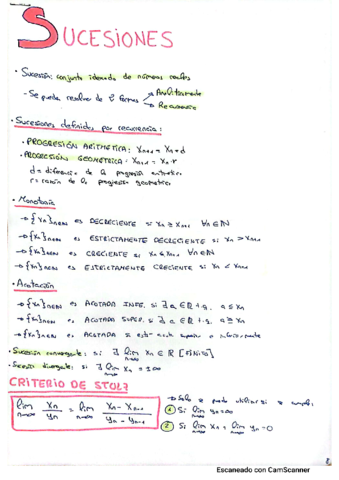 SUCESIONES
· Sucesión: conjunto ordenado de números reales
- Se puede resolver de 2 formas → Analíticamente
→ Recurrencia
· Sucesiones definidas por recurrencia:
· PROGRESIÓN ARITMÉTICA: Xn+1 = Xn + d
· PROGRESIÓN GEOMÉTRICA: Xn+1 = Xn · r
d = diferencia de la progresión aritmética
r = razón de la progresión geométrica
· Monotonía
→ {Xn}n∈N es DECRECIENTE si Xn ≥ Xn+1 ∀n∈N
→ {Xn}n∈N es ESTRICTAMENTE DECRECIENTE si Xn > Xn+1
→ {Xn}n∈N es CRECIENTE si Xn ≤ Xn+1 ∀n∈N
→ {Xn}n∈N es ESTRICTAMENTE CRECIENTE si Xn < Xn+1
· Acotación
→ {Xn}n∈N es ACOTADA INFE. si ∃ a ∈ R t.q. a ≤ Xn
→ {Xn}n∈N es ACOTADA SUPER. si ∃ a ∈ R t.q. a ≥ Xn
→ {Xn}n∈N es ACOTADA si está acot. superior e inferiormente
· Sucesión convergente: si ∃ lim Xn ∈ R [FINITO]
· Sucesión divergente: si ∃ lim Xn = ±∞
CRITERIO DE STOLZ
lim n→∞ Xn/yn = lim n→∞ (Xn - Xn-1)/(yn - yn-1)
→ Solo se puede utilizar si se cumple:
1 Si lim yn = ∞
2 Si lim Xn = lim yn = 0
Escaneado con CamScanner